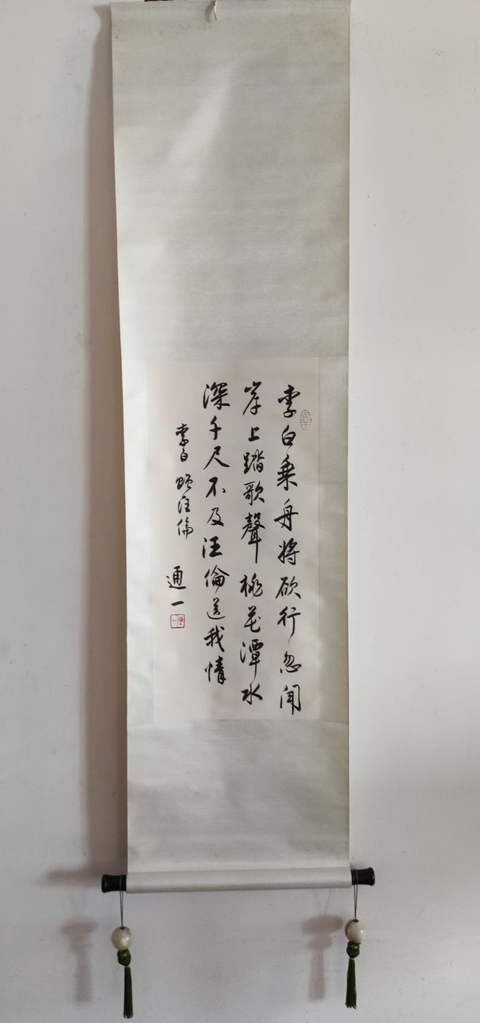 李白乘舟将欲行忽闻
岸上踏歌聲桃花潭水
深千尺不及汪倫送我情
李白 赠汪倫
通一